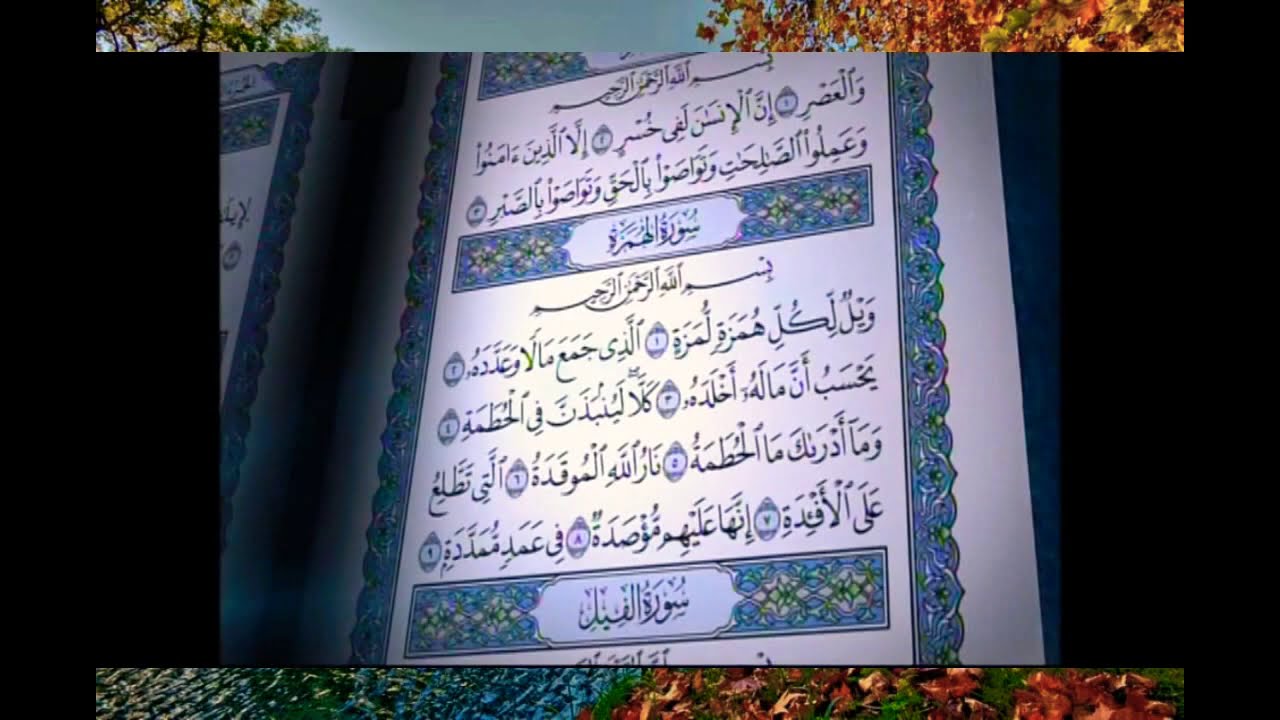 بِسْمِ ٱللَّهِ ٱلرَّحْمَٰنِ ٱلرَّحِيمِ
وَٱلْعَصْرِ ١ إِنَّ ٱلْإِنسَٰنَ لَفِى خُسْرٍ ٢ إِلَّا ٱلَّذِينَ ءَامَنُوا۟
وَعَمِلُوا۟ ٱلصَّٰلِحَٰتِ وَتَوَاصَوْا۟ بِٱلْحَقِّ وَتَوَاصَوْا۟ بِٱلصَّبْرِ ٣
سُورَةُ الهُمَزَةِ
بِسْمِ ٱللَّهِ ٱلرَّحْمَٰنِ ٱلرَّحِيمِ
وَيْلٌ لِّكُلِّ هُمَزَةٍ لُّمَزَةٍ ١ ٱلَّذِى جَمَعَ مَالًا وَعَدَّدَهُۥ ٢
يَحْسَبُ أَنَّ مَالَهُۥٓ أَخْلَدَهُۥ ٣ كَلَّا ۖ لَيُنۢبَذَنَّ فِى ٱلْحُطَمَةِ ٤
وَمَآ أَدْرَىٰكَ مَا ٱلْحُطَمَةُ ٥ نَارُ ٱللَّهِ ٱلْمُوقَدَةُ ٦ ٱلَّتِى تَطَّلِعُ
عَلَى ٱلْأَفْـِٔدَةِ ٧ إِنَّهَا عَلَيْهِم مُّؤْصَدَةٌ ٨ فِى عَمَدٍ مُّمَدَّدَةٍۭ ٩
سُورَةُ الفِيلِ